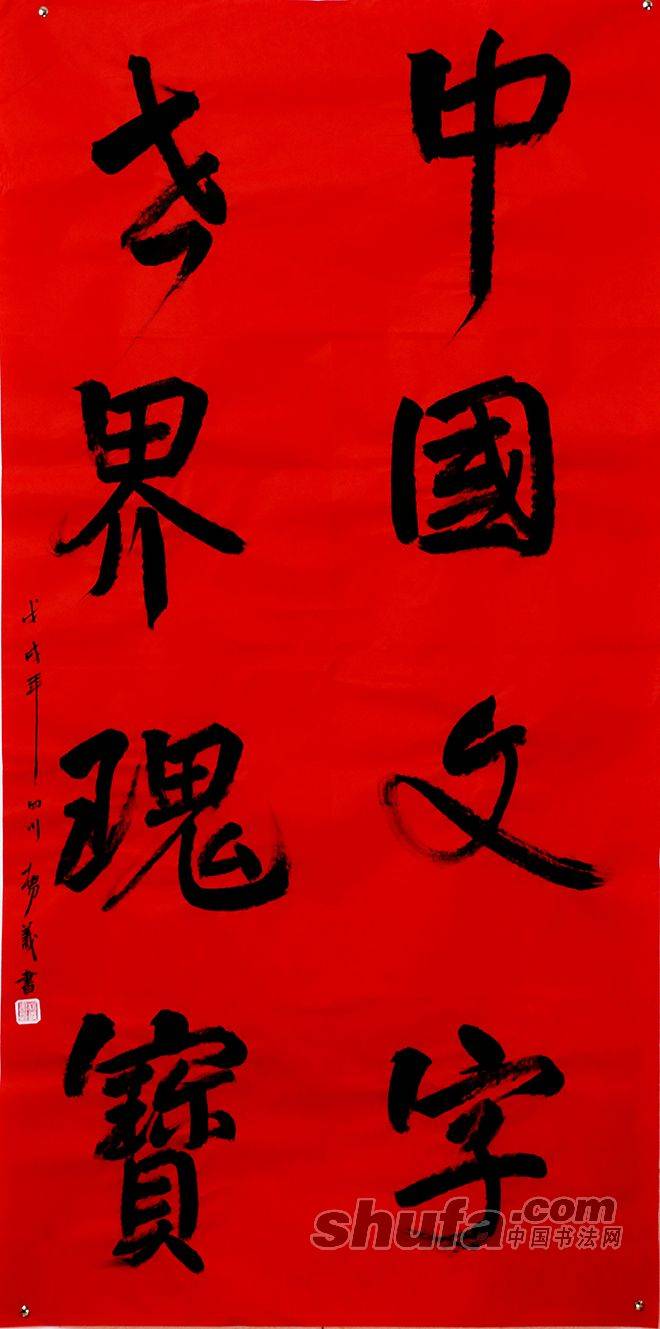 中國文字
世界瑰寶
戊戌年四川楊義書
shufa.com
中国书法网